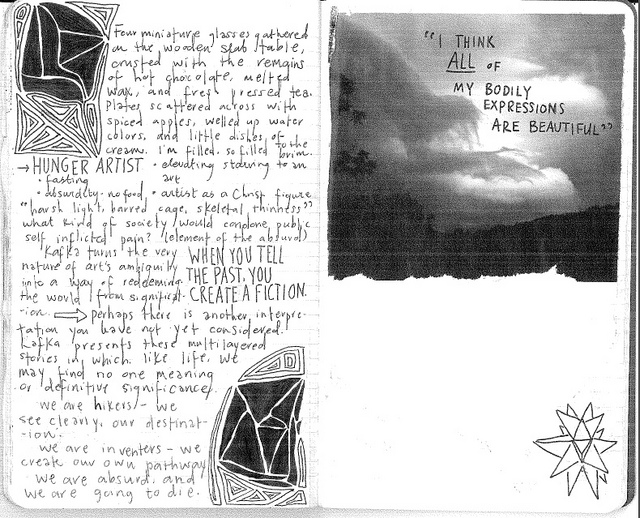 Four miniature glasses gathered
on the wooden slab table,
crusted with the remains
of hot chocolate, melted
wax, and free pressed tea.
Plates scattered across with
spiced apples, welled up water
colors, and little dishes of
cream. I'm filled. so filled to the brim.
→ HUNGER ARTIST
• fasting
• absurdity - no food
• elevating starving to an
art
• artist as a Christ figure
"harsh light, barred cage, skeletal thinness"
what kind of society would condone public
self inflicted pain? (element of the absurd)
Kafka turns the very
nature of art's ambiguity
into a way of redeeming
the world from significat-
ion.
WHEN YOU TELL
THE PAST, YOU
CREATE A FICTION.
⇒ perhaps there is another interpre-
tation you have not yet considered.
Kafka presents these multilayered
stories in which, like life, we
may find no one meaning
or definitive significance.
we are hikers - we
see clearly, our destinat-
-ion.
we are inventers - we
create our own pathway
We are absurd, and
we are going to die.
"I THINK
ALL OF
MY BODILY
EXPRESSIONS
ARE BEAUTIFUL"